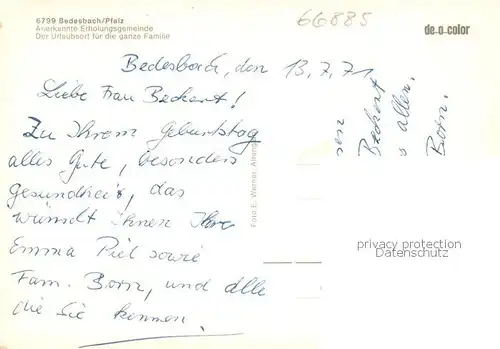 6799 Bedesbach/Pfalz
Anerkannte Erholungsgemeinde
Der Urlaubsort für die ganze Familie
66885
de-o-color
Bedesbach, den 13.7.71
Liebe Frau Beckert!
Zu Ihrem Geburtstag
alles Gute, besonders
Gesundheit, das
wünscht Ihnen Ihre
Emma Piel sowie
Fam. Born, und alle
die Sie kennen.
Foto E. Werner,
Beckert
allen.
Born.
privacy protection
Datenschutz